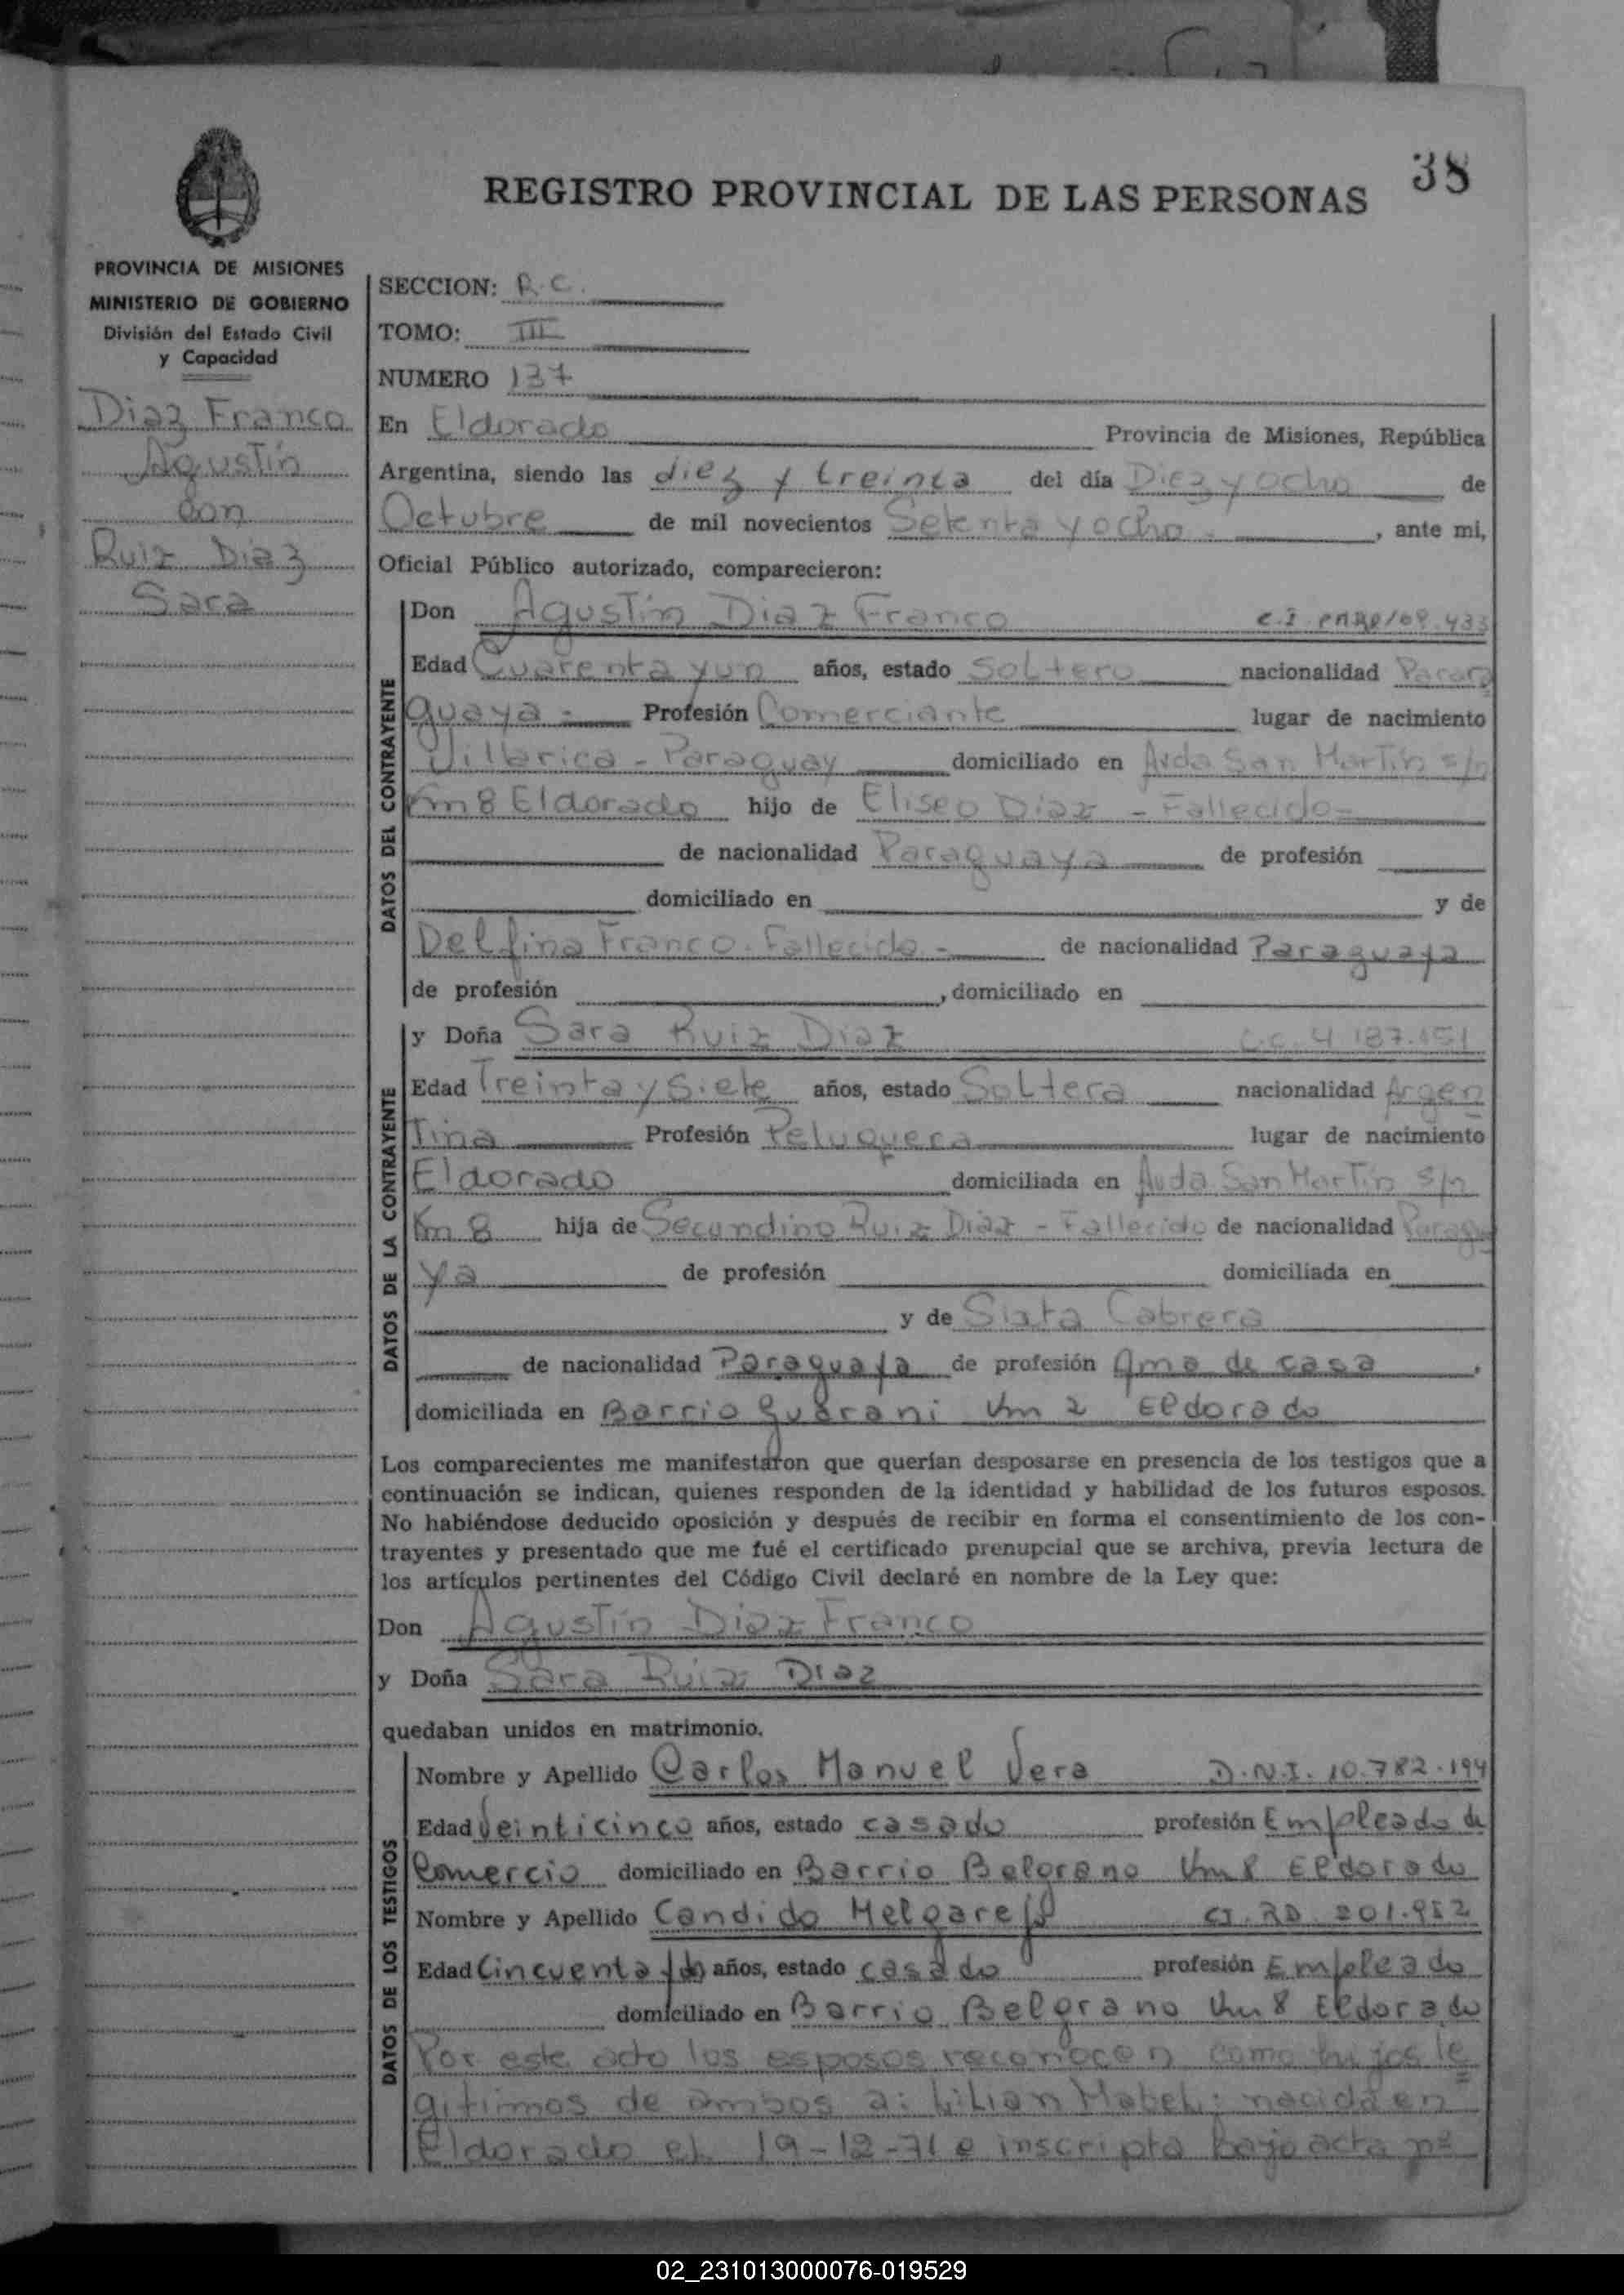 38
REGISTRO PROVINCIAL DE LAS PERSONAS
PROVINCIA DE MISIONES
MINISTERIO DE GOBIERNO
División del Estado Civil
y Capacidad
Diaz Franco
Agustín
Con
Ruiz Diaz
Sara
SECCION: R.C.
TOMO: III
NUMERO 137
En Eldorado Provincia de Misiones, República
Argentina, siendo las diez y treinta del día Diez y ocho de
Octubre de mil novecientos Setenta y ocho.- , ante mi,
Oficial Público autorizado, comparecieron:
DATOS DEL CONTRAYENTE
Don Agustín Diaz Franco C.I.
Edad Cuarenta y un años, estado Soltero nacionalidad Para
guaya.- Profesión Comerciante lugar de nacimiento
Villarica - Paraguay domiciliado en Avda San Martín s/n
Km 8 Eldorado hijo de Eliseo Diaz - Fallecido-
de nacionalidad Paraguaya de profesión
domiciliado en y de
Delfina Franco. Fallecida - de nacionalidad Paraguaya
de profesión , domiciliado en
DATOS DE LA CONTRAYENTE
y Doña Sara Ruiz Diaz 4.187.151
Edad Treinta y Siete años, estado Soltera nacionalidad Argen
Tina Profesión Peluquera lugar de nacimiento
Eldorado domiciliada en Avda San Martín s/n
Km 8 hija de Secundino Ruiz Diaz - Fallecido de nacionalidad Paragua
ya de profesión domiciliada en
y de Sixta Cabrera
de nacionalidad Paraguaya de profesión Ama de casa ,
domiciliada en Barrio Guarani Km 2 Eldorado
Los comparecientes me manifestaron que querían desposarse en presencia de los testigos que a
continuación se indican, quienes responden de la identidad y habilidad de los futuros esposos.
No habiéndose deducido oposición y después de recibir en forma el consentimiento de los con-
trayentes y presentado que me fué el certificado prenupcial que se archiva, previa lectura de
los artículos pertinentes del Código Civil declaré en nombre de la Ley que:
Don Agustín Diaz Franco
y Doña Sara Ruiz Diaz
quedaban unidos en matrimonio.
DATOS DE LOS TESTIGOS
Nombre y Apellido Carlos Manuel Vera D.N.I. 10.782.194
Edad Veinticinco años, estado casado profesión Empleado de
Comercio domiciliado en Barrio Belgrano Km 8 Eldorado
Nombre y Apellido Candido Melgarejo CI. RD. 201.952
Edad Cincuenta y dos años, estado casado profesión Empleado
domiciliado en Barrio Belgrano Km 8 Eldorado
Por este acto los esposos reconocen como hijos le
gitimos de ambos a: Lilian Mabel; nacida en
Eldorado el 19-12-71 e inscripta bajo acta nº
02_231013000076-019529